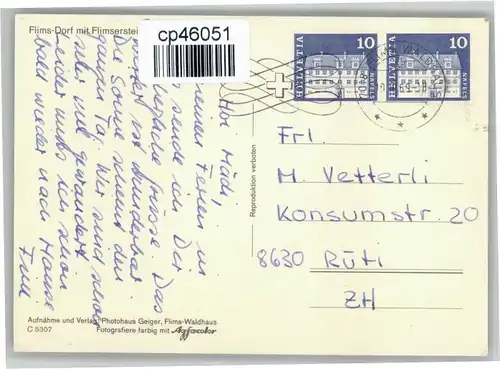 Flims-Dorf mit Flimserstei
cp46051
HELVETIA 10 NÄFELS
HELVETIA 10 NÄFELS
Hoi Hädi,
meinen Ferien in
sende ich Dir
liebe Grüsse. Das
Wetter ist wunderbar.
Die Sonne scheint den
ganzen Tag. Wir sind schon
sehr viel gewandert.
Leider muss ich schon
bald wieder nach Hause
Reproduktion verboten
Frl.
M. Vetterli
Konsumstr. 20
8630 Rüti
ZH
Aufnahme und Verlag Photohaus Geiger, Flims-Waldhaus
C 5307 Fotografiere farbig mit Agfacolor